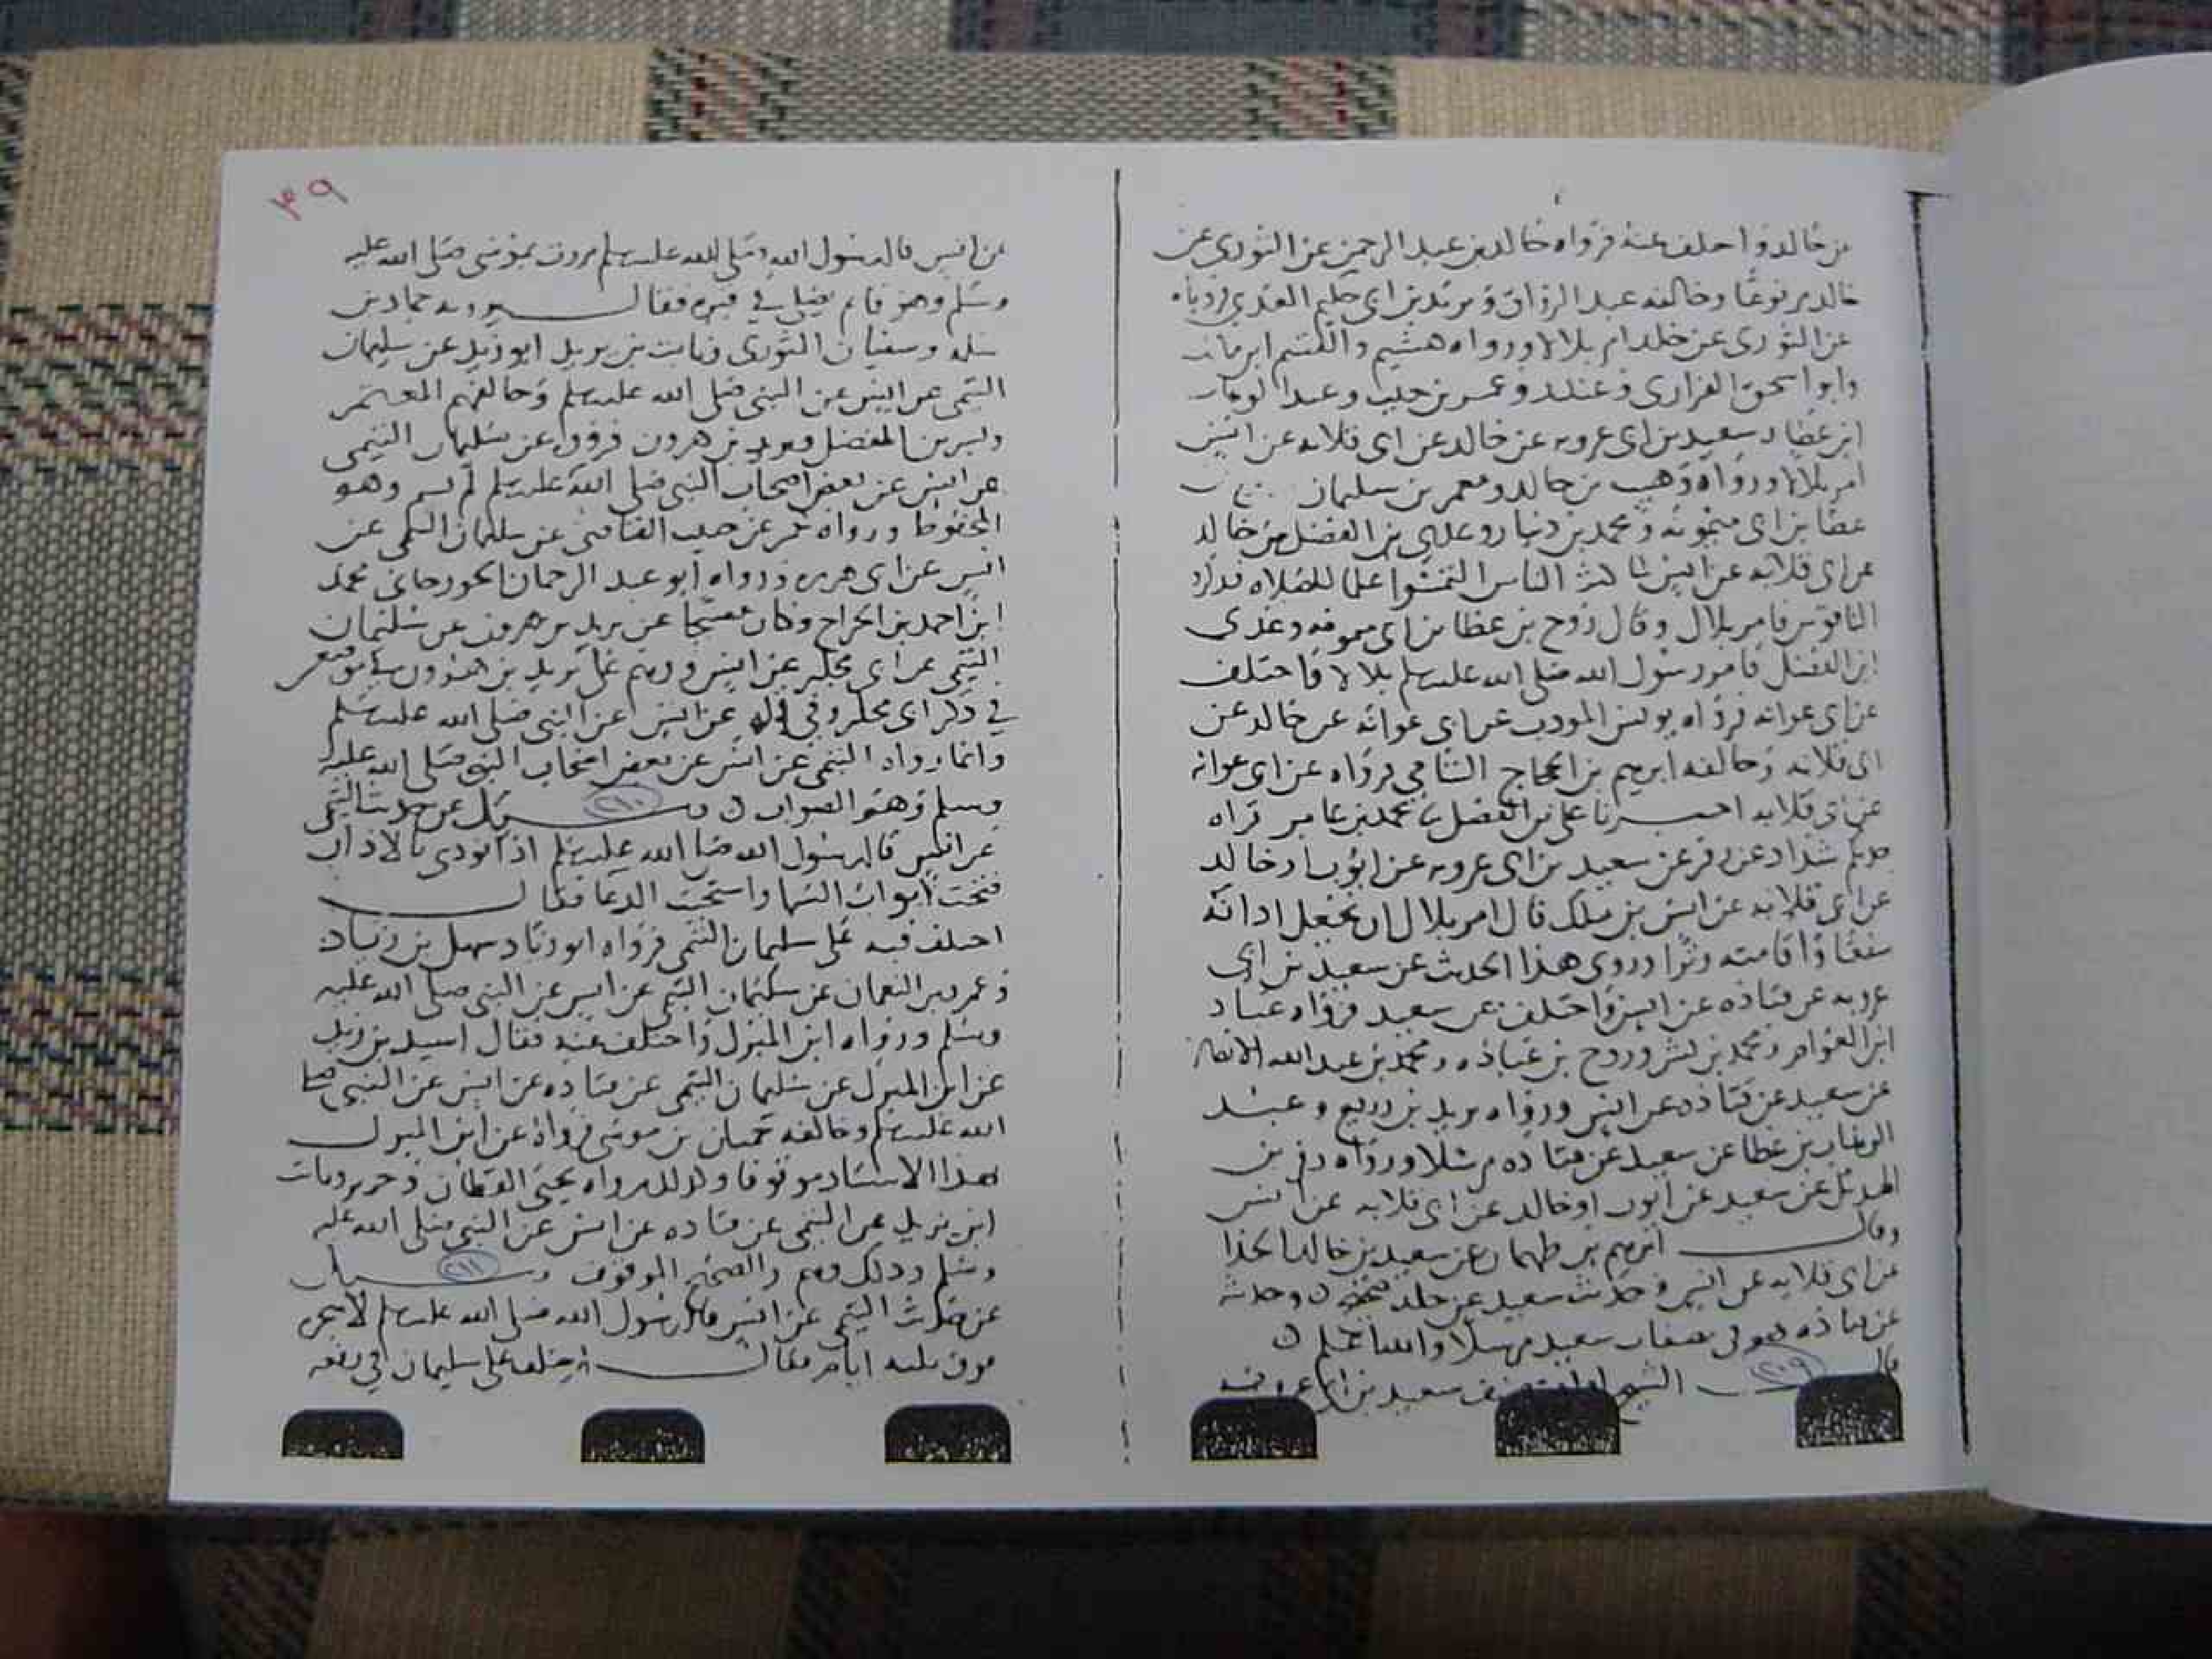 عن خالد واختلف عنه فرواه خالد بن عبد الرحمن عن الثوري عن
خالد مرفوعا وخالفه عبد الرزاق ومرثد بن ابي حليم العدني روياه
عن الثوري عن خلد امر بلالا ورواه هشيم والقسم ابن مالك
وابو اسحق الفزاري وغندر وعمر بن حبيب وعبد الوهاب
ابن عطا وسعيد بن ابي عروبه عن خالد عن ابي قلابه عن انس
امر بلالا ورواه وهيب عن خالد ومعمر بن سليمان
عطا بن ابي ميمونه ومحمد بن دينار وعلي بن الفضل عن خالد
عن ابي قلابه عن انس لما كثر الناس التمسوا علما للصلاه فذكروا
الناقوس فامر بلال وقال روح بن عطا بن ابي ميمونه وعدي
ابن الفضل فامر رسول الله صلى الله عليه وسلم بلالا فاختلف
عن ابي عوانه فرواه يونس المودب عن ابي عوانه عن خالد عن
ابي قلابه وخالفه ابرهيم بن الحجاج الشامي فرواه عن ابي عوانه
عن ابي قلابه اخبرنا علي بن الفضل محمد بن عامر قراه
حدثكم شداد عن زفر عن سعيد بن ابي عروبه عن ايوب او خالد
عن ابي قلابه عن انس بن ملك قال امر بلال ان يجعل اذانه
شفعا واقامته وترا وروى هذا الحديث عن سعيد بن ابي
عروبه عن قتاده عن انس واختلف عن سعيد فرواه عباد
ابن العوام ومحمد بن بشر وروح بن عباده ومحمد بن عبد الله الانصاري
عن سعيد عن قتاده عن انس ورواه يزيد بن زريع وعبد
الوهاب بن عطا عن سعيد عن قتاده مرسلا ورواه زفر بن
الهذيل عن سعيد عن ايوب او خالد عن ابي قلابه عن انس
وقال ابرهيم بن طهمان عن سعيد عن خالد الحذا
عن ابي قلابه عن انس وحديث سعيد عن خلد وحديثه
عن قتاده سعيد مرسلا والله اعلم
قال ٢٠٩ الشيخ سعيد بن ابي عروبه
٣٩
عن انس قال رسول الله صلى الله عليه وسلم مررت بموسى صلى الله عليه
وسلم وهو قايم يصلي في قبره فقال يرويه حماد بن
سلمه وسفيان الثوري وثابت بن يزيد ابو زيد عن سليمان
التيمي عن انس عن النبي صلى الله عليه وسلم وخالفهم المعتمر
وبشر بن المفضل ويزيد بن هرون فرووه عن سليمان التيمي
عن انس عن بعض اصحاب النبي صلى الله عليه وسلم لم يسم وهو
المحفوظ ورواه عمر عن حبيب القاضي عن سليمان التيمي عن
انس عن ابي هريره ورواه ابو عبد الرحمان الجورجاني محمد
ابن احمد بن الجراح وكان عن يزيد بن هرون عن سليمان
التيمي عن ابي مجلز عن انس ووهم على يزيد بن هارون في موضعين
في ذكر ابي مجلز وفي قوله عن انس عن النبي صلى الله عليه وسلم
وانما رواه التيمي عن انس عن بعض اصحاب النبي صلى الله عليه
وسلم وهو الصواب ٢١٠ وسئل عن حديث التيمي
عن انس قال رسول الله صلى الله عليه وسلم اذا نودي بالاذان
فتحت ابواب السما واستجيب الدعا فقال
اختلف فيه على سليمان التيمي فرواه ابو زياد سهل بن زياد
وعمر بن النعمان عن سليمان التيمي عن انس عن النبي صلى الله عليه
وسلم ورواه ابن المبرك واختلف عنه فقال اسيد بن زيد
عن ابن المبرك عن سليمان التيمي عن قتاده عن انس عن النبي صلى
الله عليه وسلم وخالفه بن موسى فرواه عن ابن المبرك
بهذا الاسناد موقوفا وكذلك رواه يحيى القطان وجرير وثابت
ابن يزيد عن التيمي عن قتاده عن انس عن النبي صلى الله عليه
وسلم وذلك وهم والصحيح الموقوف ٢١١ وسئل
عن حديث التيمي عن انس قال رسول الله صلى الله عليه وسلم لا هجره
فوق ثلثه ايام فقال اختلف على سليمان في رفعه